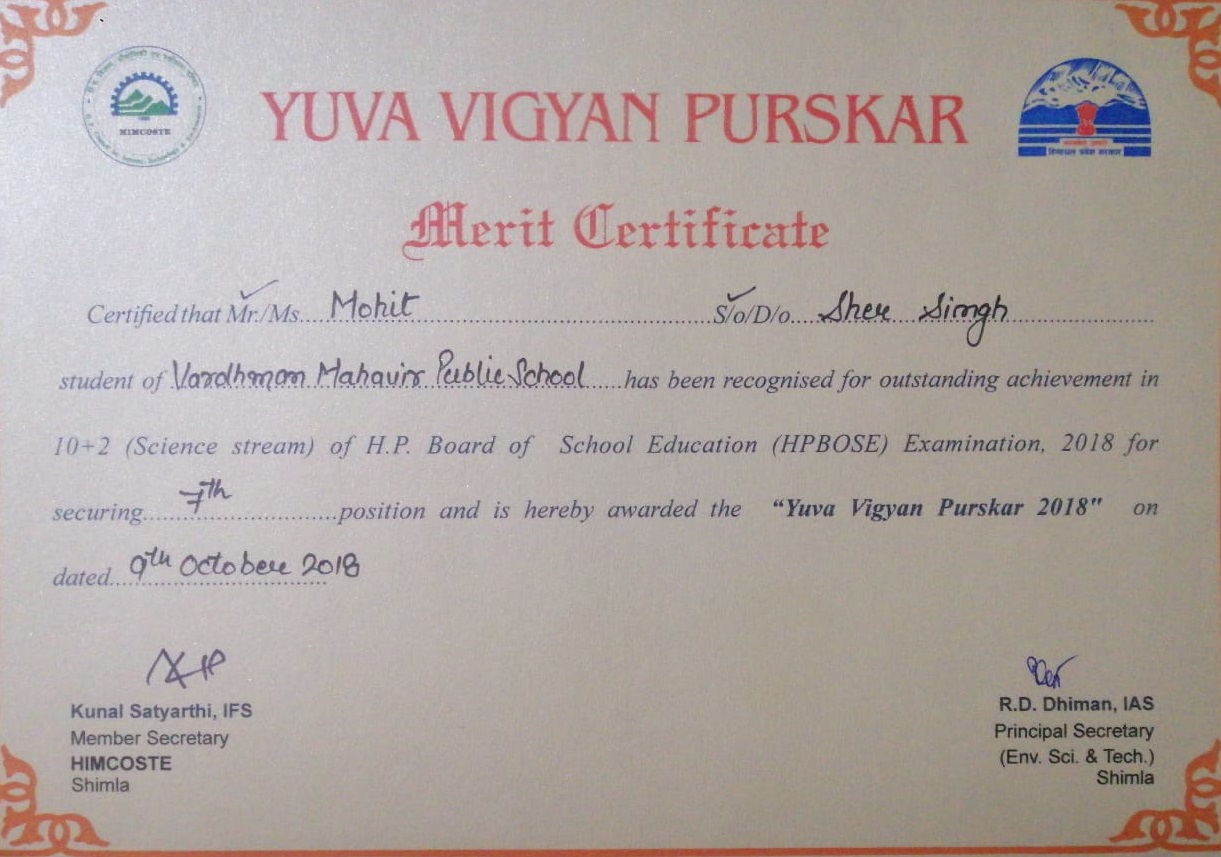 HIMCOSTE
YUVA VIGYAN PURSKAR
हिमाचल प्रदेश सरकार
Merit Certificate
Certified that Mr./Ms....Mohit....S/o/D/o....Sher Singh....
student of Vardhman Mahavir Public School....has been recognised for outstanding achievement in
10+2 (Science stream) of H.P. Board of School Education (HPBOSE) Examination, 2018 for
securing....7th....position and is hereby awarded the "Yuva Vigyan Purskar 2018" on
dated....9th October 2018
Kunal Satyarthi, IFS
Member Secretary
HIMCOSTE
Shimla
R.D. Dhiman, IAS
Principal Secretary
(Env. Sci. & Tech.)
Shimla